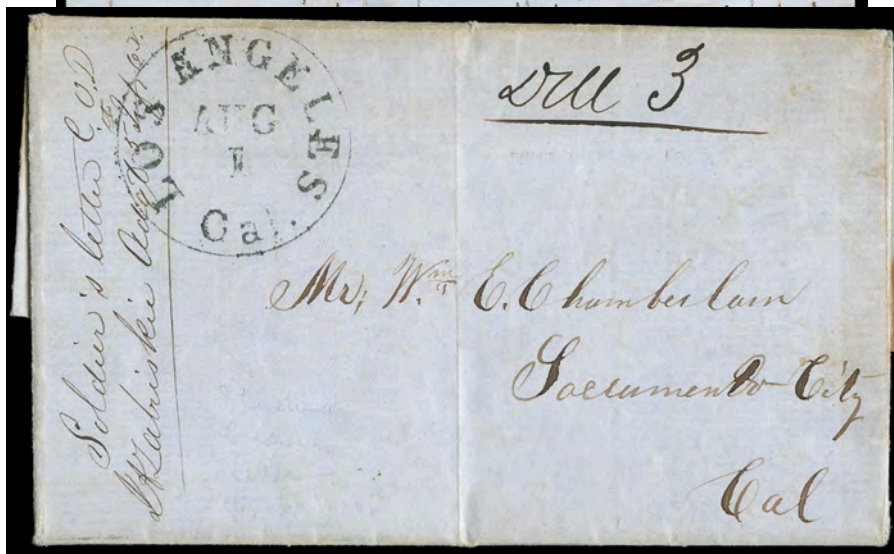 Soldier's letter C.O.D
Zabriskie Adjt 5th Inf
LOS ANGELES
AUG
1
Cal.
Due 3
Mr; Wm E. Chamberlain
Sacramento City
Cal